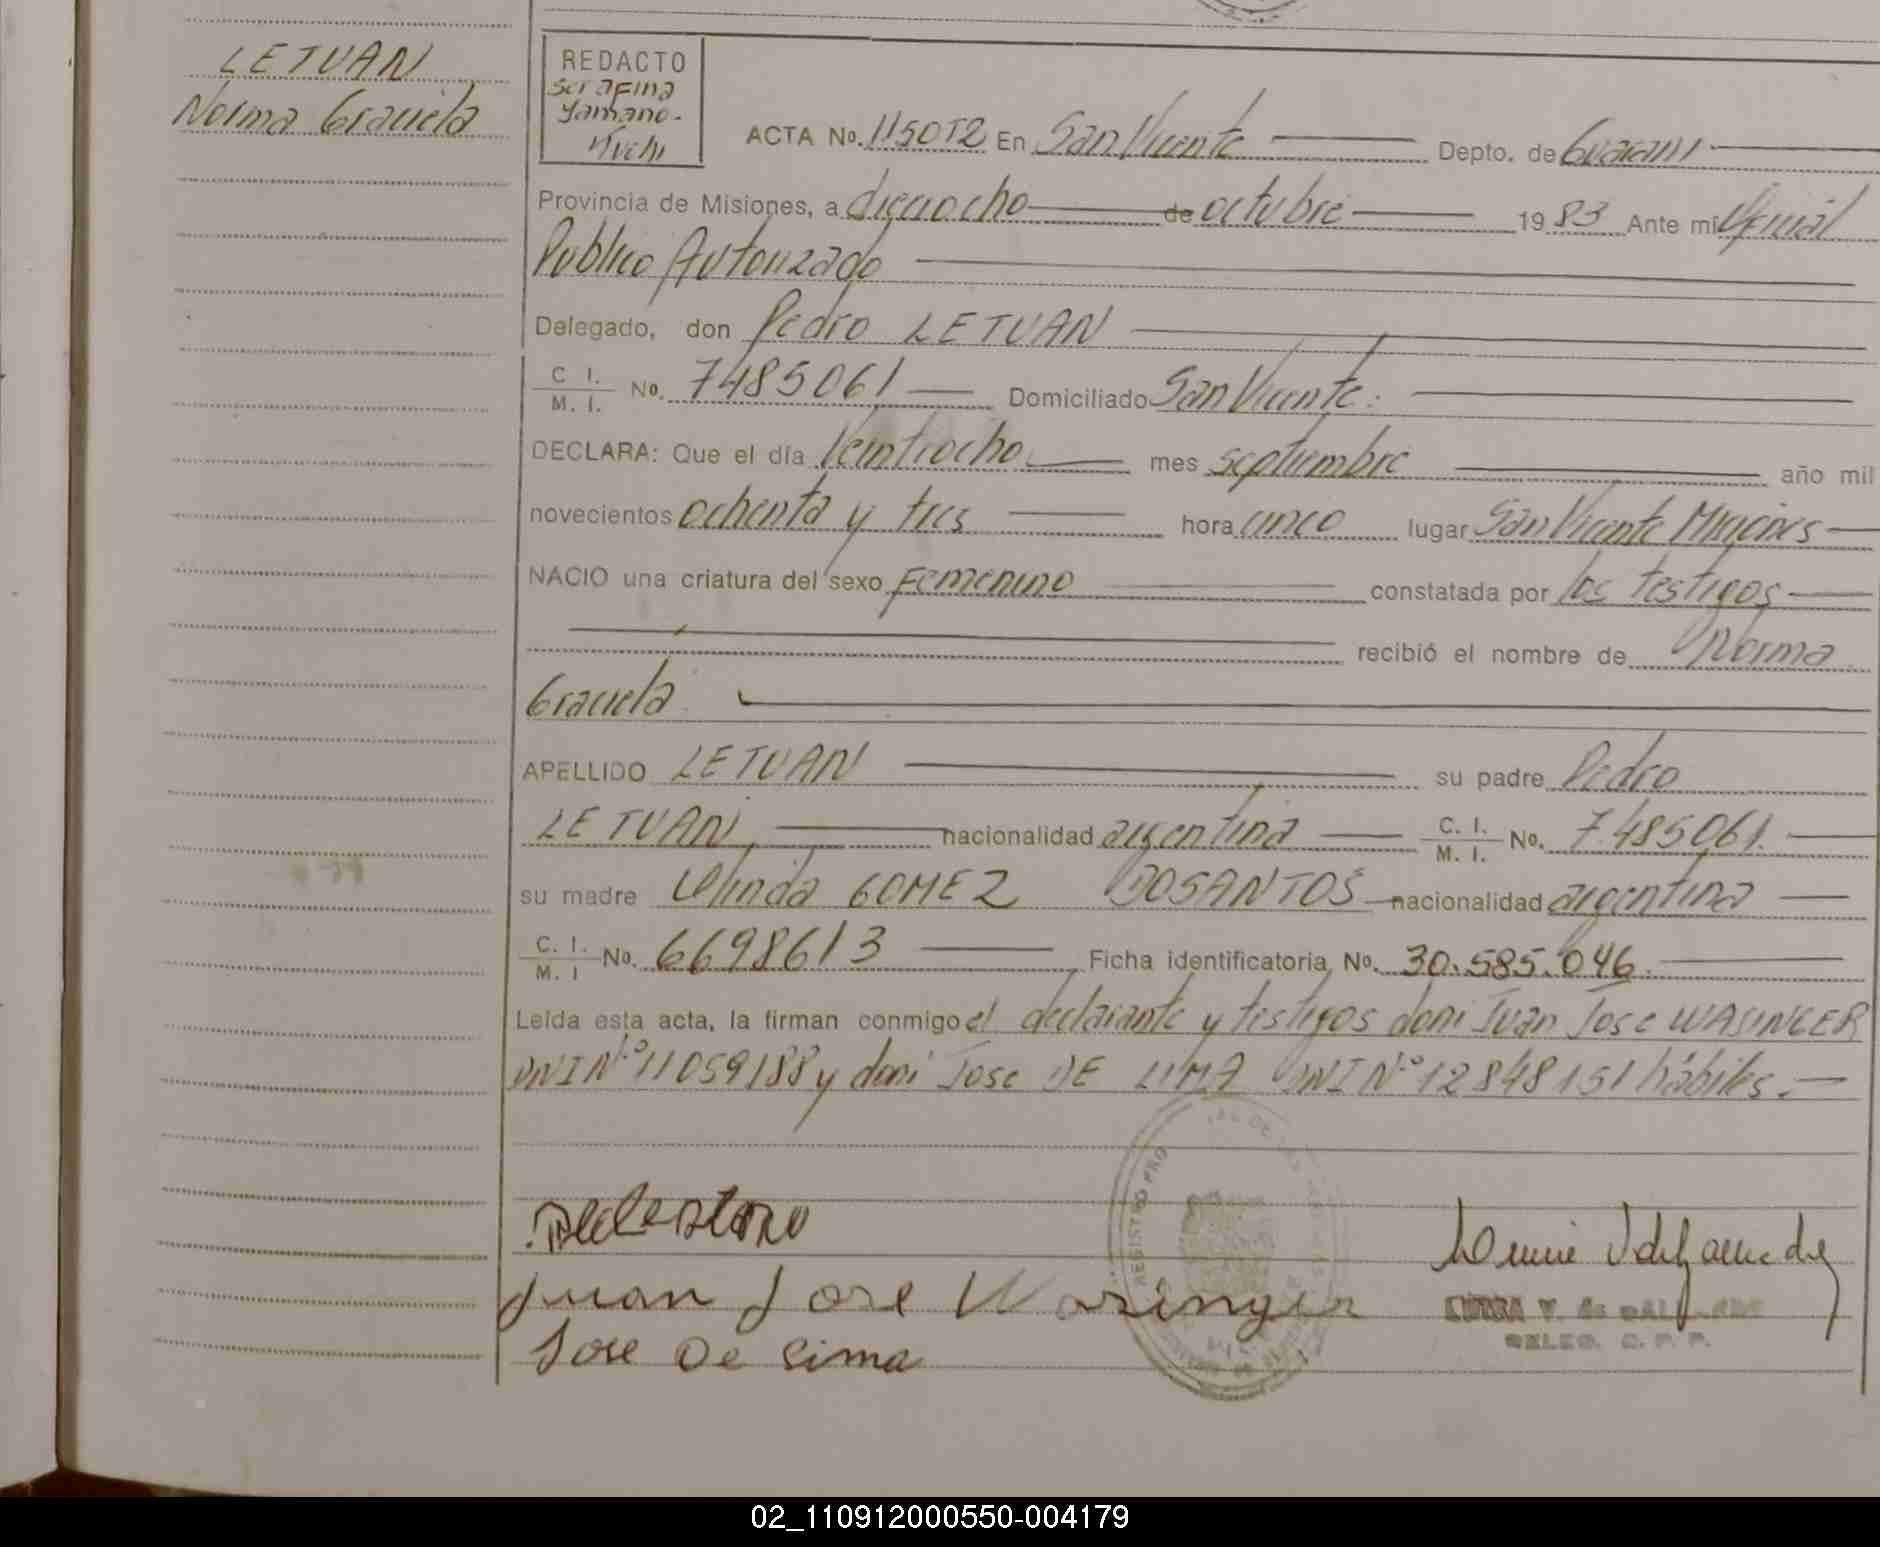 LETUAN
Norma Graciela
REDACTO
Serafina
Yamano-
Kuchi
ACTA No. 115 OT2 En San Vicente Depto. de Guarani
Provincia de Misiones, a dieciocho de octubre 1983 Ante mi Oficial
Público Autorizado
Delegado, don Pedro LETUAN
C I. M. I. No. 7485061 Domiciliado San Vicente.
DECLARA: Que el día Veintiocho mes septiembre año mil
novecientos ochenta y tres hora cinco lugar San Vicente Misiones
NACIO una criatura del sexo Femenino constatada por los testigos
recibió el nombre de Norma
Graciela
APELLIDO LETUAN su padre Pedro
LETUAN nacionalidad argentina C. I. M. I. No. 7.485061.
su madre GOMEZ DOSANTOS nacionalidad argentina
C. I. M. I No. 6698613 Ficha identificatoria No. 30.585.046
Leída esta acta, la firman conmigo el declarante y testigos don: Juan Jose WASINGER
DNI N.º 11059188 y don: Jose DE LIMA DNI Nº 12848151 hábiles.
REGISTRO PRO
Juan Jose Wasinger
Jose De Lima
DELEG. C. P. P.
02_110912000550-004179